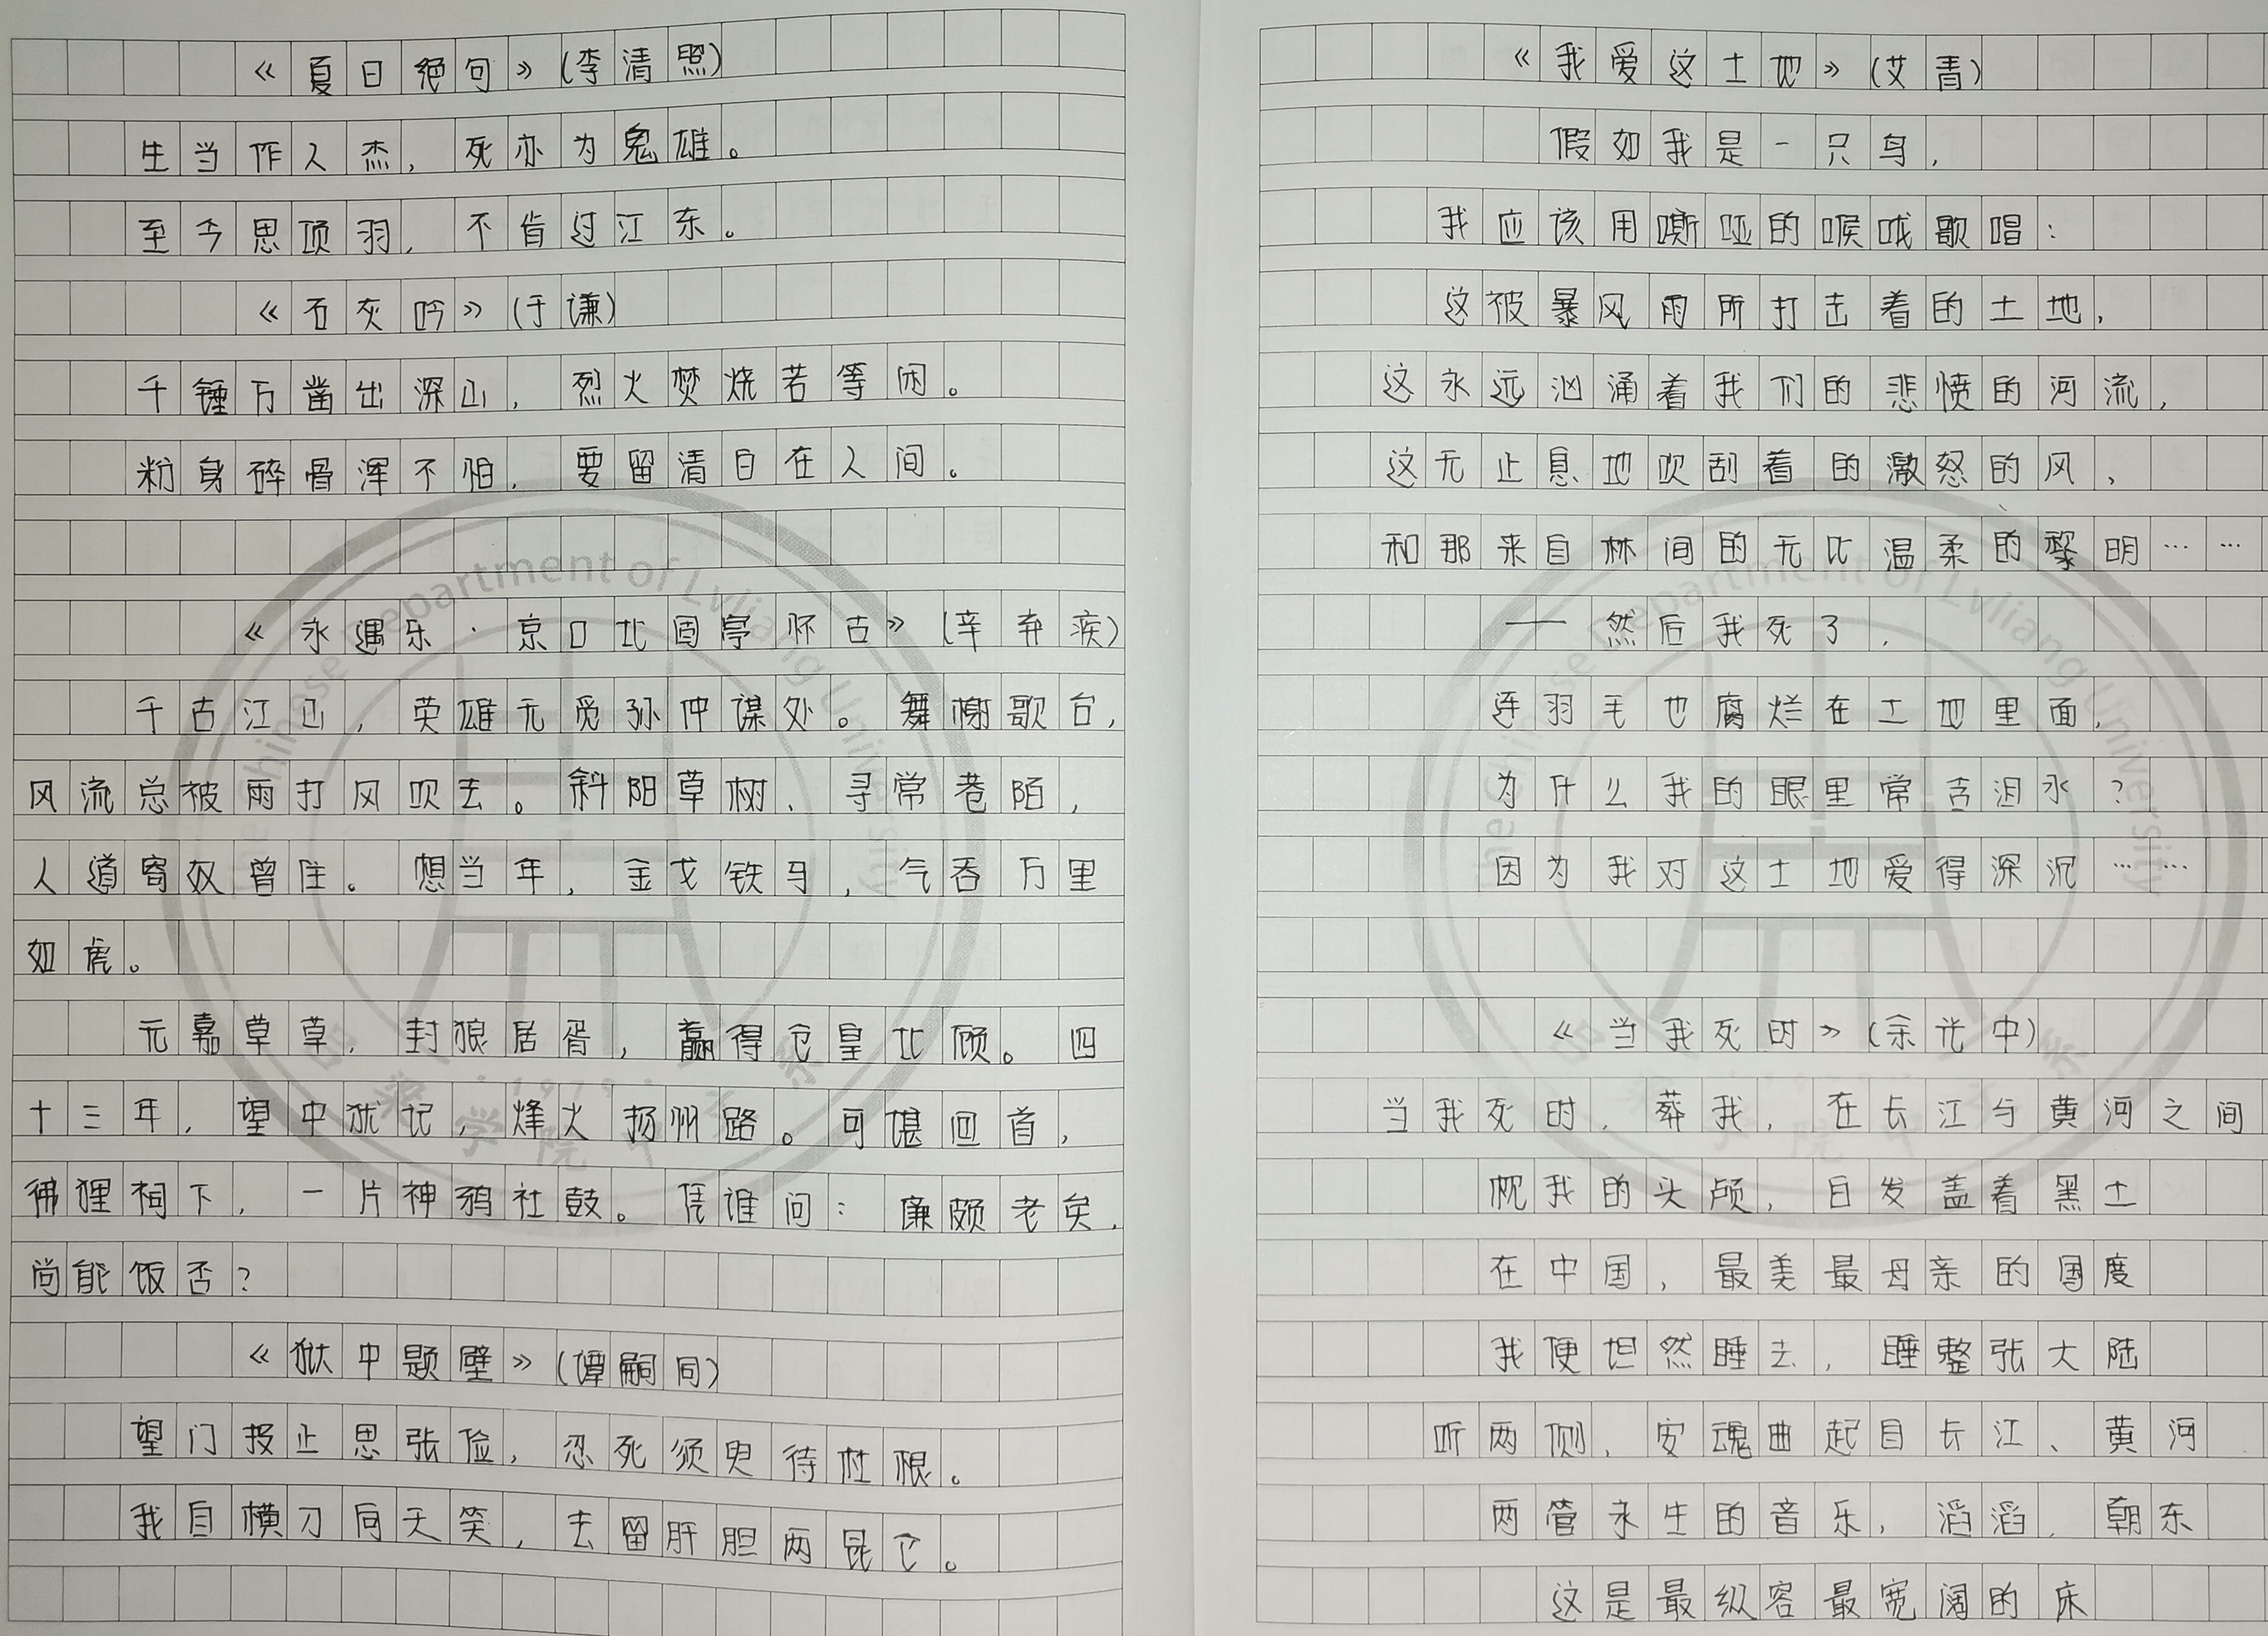 《夏日绝句》(李清照)
生当作人杰，死亦为鬼雄。
至今思项羽，不肯过江东。
《石灰吟》(于谦)
千锤万凿出深山，烈火焚烧若等闲。
粉身碎骨浑不怕，要留清白在人间。
《永遇乐·京口北固亭怀古》(辛弃疾)
千古江山，英雄无觅孙仲谋处。舞榭歌台，
风流总被雨打风吹去。斜阳草树、寻常巷陌，
人道寄奴曾住。想当年，金戈铁马，气吞万里
如虎。
元嘉草草，封狼居胥，赢得仓皇北顾。四
十三年，望中犹记，烽火扬州路。可堪回首，
彿狸祠下，一片神鸦社鼓。凭谁问：廉颇老矣，
尚能饭否？
《狱中题壁》(谭嗣同)
望门投止思张俭，忍死须臾待杜根。
我自横刀向天笑，去留肝胆两昆仑。
《我爱这土地》(艾青)
假如我是一只鸟，
我应该用嘶哑的喉咙歌唱：
这被暴风雨所打击着的土地，
这永远汹涌着我们的悲愤的河流，
这无止息地吹刮着的激怒的风，
和那来自林间的无比温柔的黎明……
——然后我死了，
连羽毛也腐烂在土地里面，
为什么我的眼里常含泪水？
因为我对这土地爱得深沉……
《当我死时》(余光中)
当我死时，葬我，在长江与黄河之间
枕我的头颅，白发盖着黑土
在中国，最美最母亲的国度
我便坦然睡去，睡整张大陆
听两侧，安魂曲起自长江、黄河
两管永生的音乐，滔滔，朝东
这是最纵容最宽阔的床
The Chinese Department of Lvliang University
吕梁学院
1979